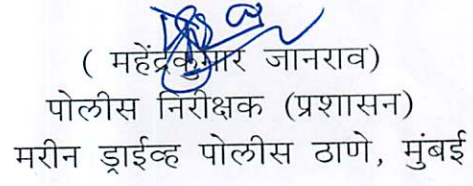 ( महेंद्रकुमार जानराव)
पोलीस निरीक्षक (प्रशासन)
मरीन ड्राईव्ह पोलीस ठाणे, मुंबई